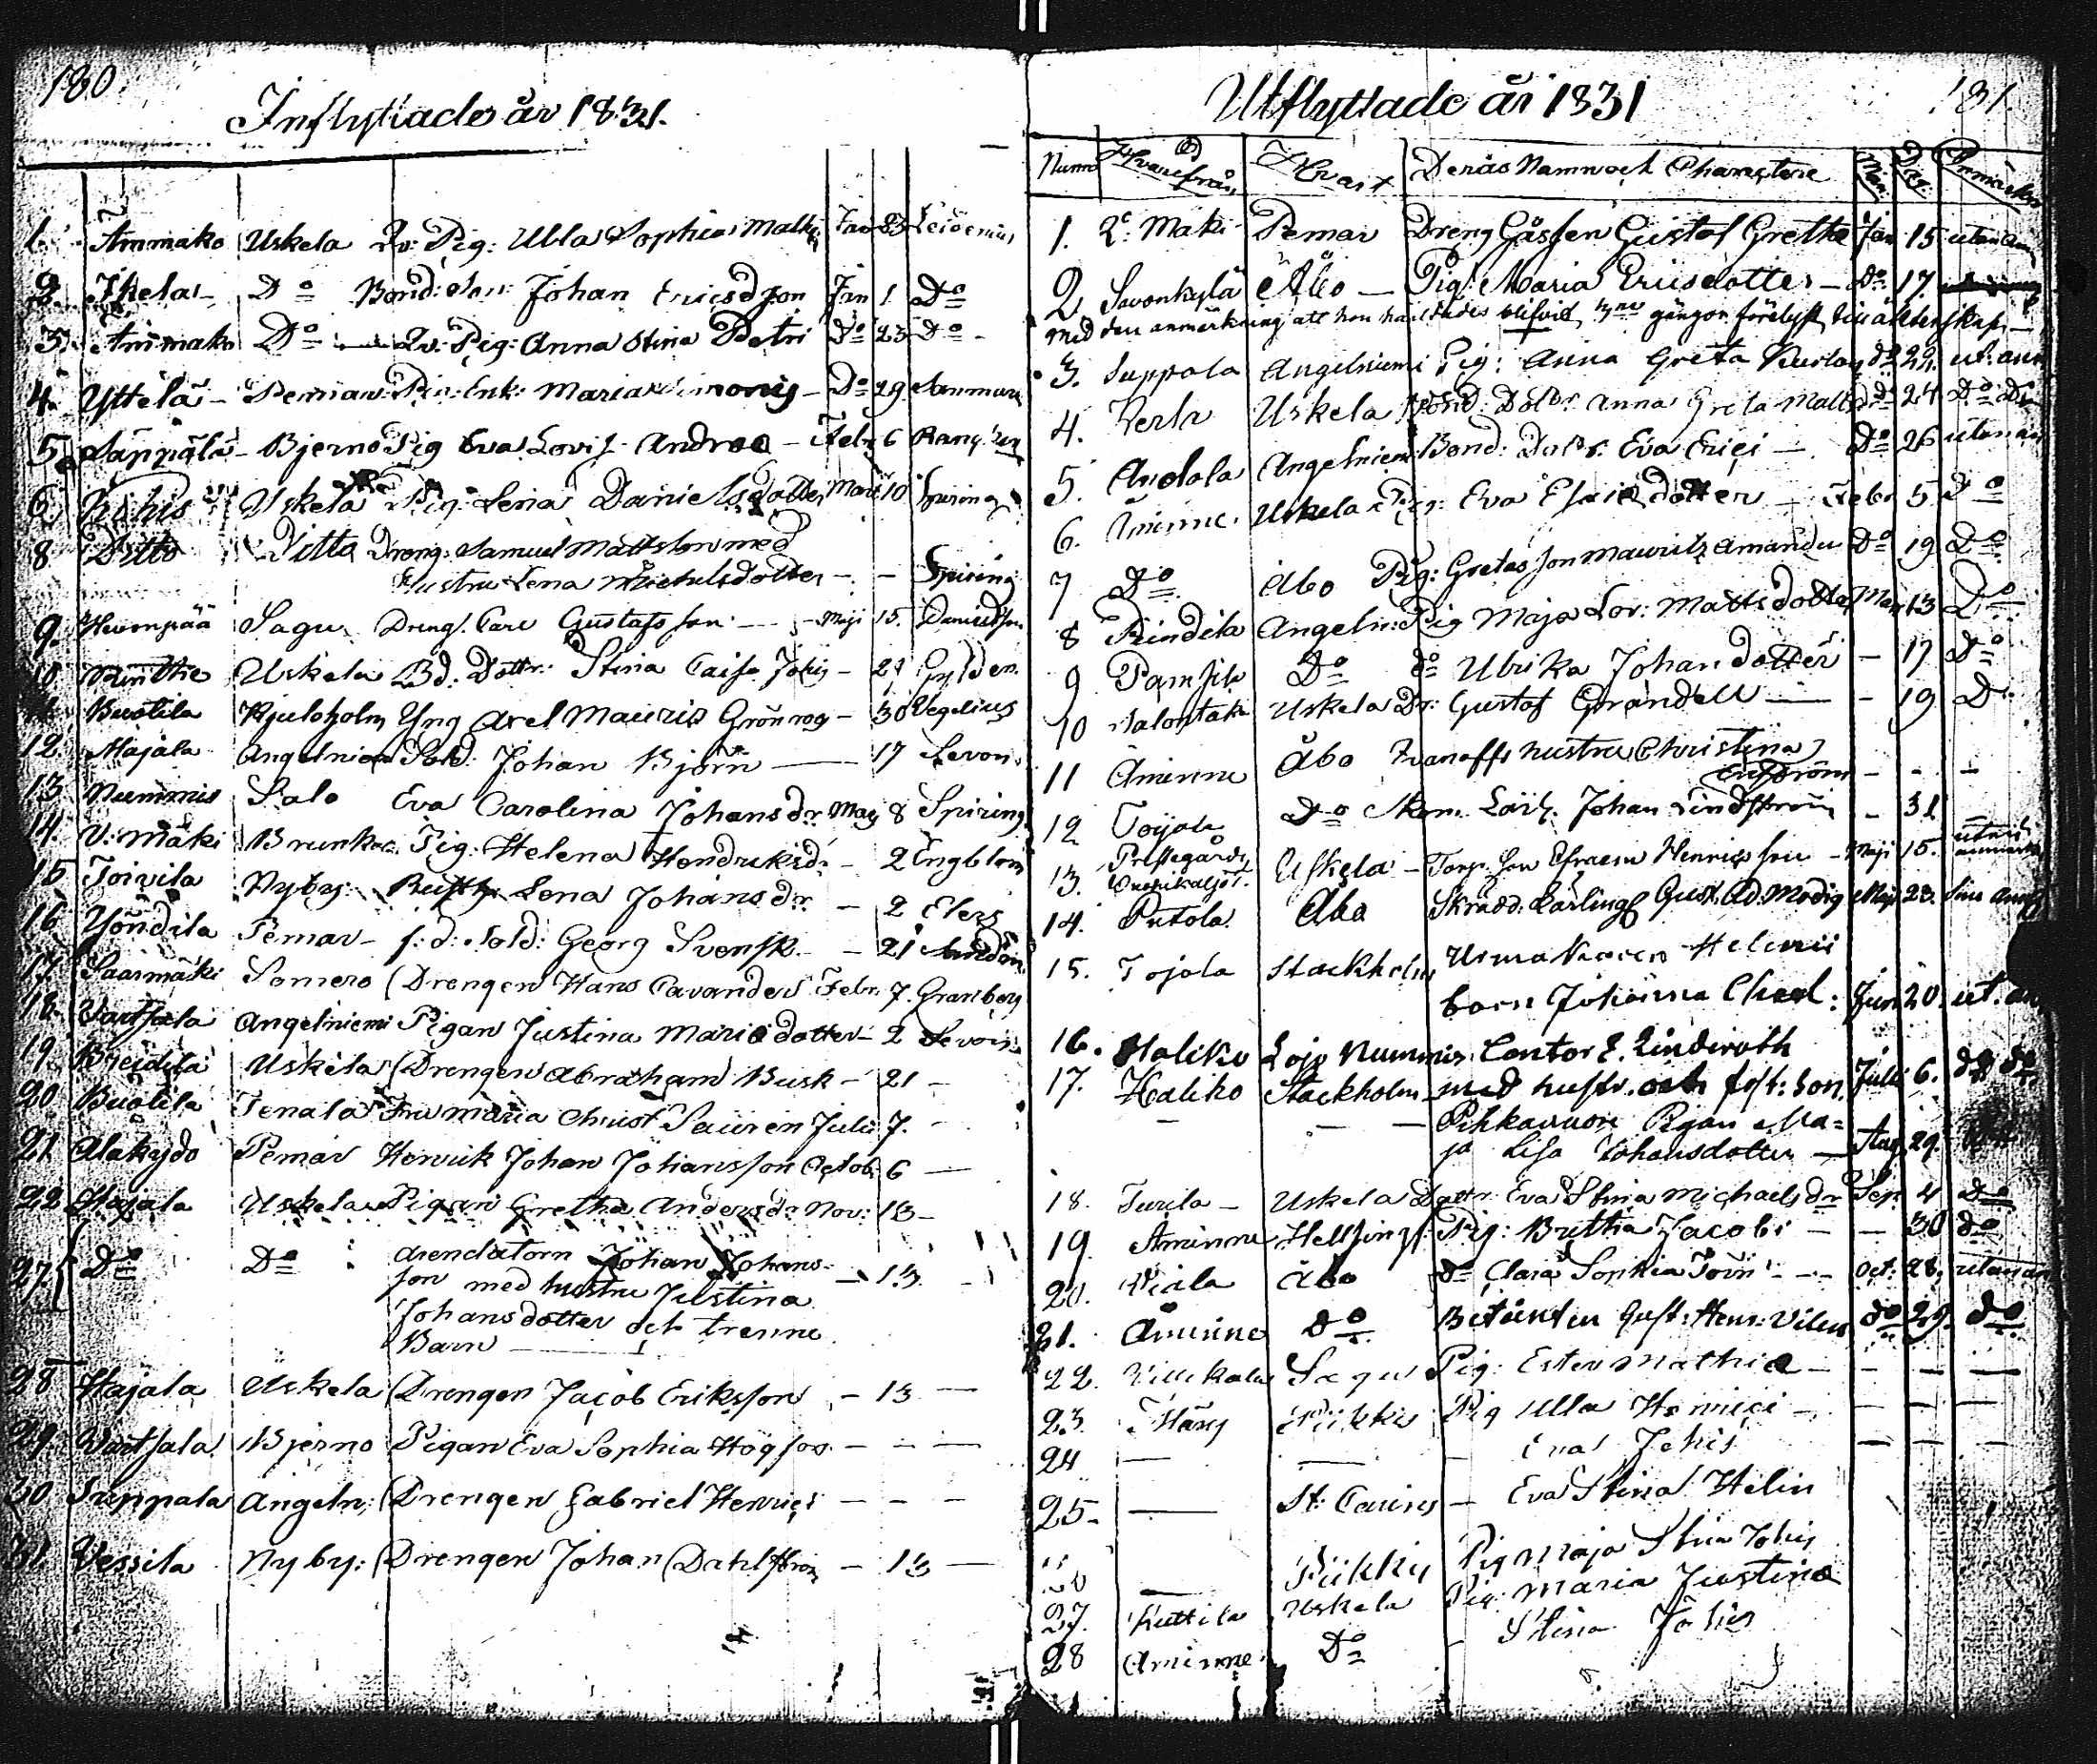 180
Inflyttade år 1831.
1. Ammako Uskela Qv: Pig: Ulla Sophia Matts Jan 23 Leidenius
2. Ihela - Do Bond: son: Johan Ericsson Jan 1 Do
3. Ammako Do Qv: Pig: Anna Stina Petri Do 23 Do -
4. Yttelä - Pemar Pig: Enk: Maria Simonis - Do 29 Sanmark
5. Säppälä - Bjerno Pig Eva Lovis: Andreæ - Febr 6
6. Kihis Uskela Pig: Lena Danielsdotter Mars 10 Spiring
8 Ditto Ditto Dreng: Samuel Mattsson med
Hustru Lena Michelsdotter - - Spiring
9. Hevonpää Sagu Dreng. Carl Gustafsson - Maji 15. Danielsson
10 Uskela Bd. Dottr: Stina Caisa Johis - 21 Gylden.
11. Buotila Kjuloholm Yng Axel Mauriz Grönroo - 30 Vegelius
12. Majala Angelniemi Sold: Johan Björn - 17 Levon.
13 Nummis Salo Eva Carolina Johansdr. May 8 Spiring
14. V: mäki Brunkar. Pig: Helena Hendriksdr - 2 Engblom
15 Toivila Nyby: Lena Johansdr. - 2 Elers
16. Yöndilä Pemar - f: d: Sold: Georg Svensk - 21
17 Saarmäki Somero Drengen Hans Cavander Febr. 7. Granberg
18. Vartsala Angelniemi Pigan Justina Mariædotter - 2 Levon.
19. Breidilä Uskela Drengen Abraham Busk - 21 -
20 Buotila Tenala Fru Maria Christ Sauren Juli 7. -
21. Alakydo Pemar Henrik Johan Johansson Octob: 6 -
22 Hajala Uskela Pigan Gretha Andersdr Nov: 13 -
27. Do Do Arendatorn Johan Johans-
son med hustru Justina - 13 -
Johansdotter och trenne
Barn
28 Hajala Uskela Drengen Jacob Eriksson - 13 -
29. Vartsala Bjerno Pigan Eva Sophia Högfors - - -
30 Suppala Angeln: Drengen Gabriel Henrici - - -
31 Vessila Nyby: Drengen Johan Dahlström - 13 -
181
Utflyttade år 1831
Numro Hvarifrån Hvart Deras Namn och Charactere Mån. Dag. Anmärkn
1. Y: Mäki Pemar Dreng Gåssen Gustaf Grethæ Jan 15 utan anm
2 Savonkylä Åbo - Pig: Maria Ericsdotter - Do 17
med den anmärkning att hon har blifvit 3ne gångor förelyst till äktenskap -
3. Suppala Angelniemi Pig: Anna Greta do 29. ut. anm
4. Uskela Bond: Dottr. Anna Greta Matts do 24 Do
5. Andola Angelniemi Bond: Dottr. Eva Erici - Do 26 utan an
6. Åminne Uskela Pig: Eva Esaiædotter - Febr 5 Do
7 Do Åbo Pig: Gretas son Mauritz Amandu Do 19 Do
8 Rindela Angeln: Pig Maja Lov: Mattsdotter Mars 13 Do
9 Pamsila Do do Ulrika Johansdotter - 17 Do
10 Uskela Dr: Gustaf Grandell - 19 Do
11 Åminne Åbo Ivanoffs hustru Christina
Engström - - -
12 Toijola Do Skom. Lärl. Johan Lindström - 31
13. Prestegårds Uskela - Torp. Son Efraim Henricsson - Maji 15. utan anmärkn
14. Putola Åbo Skrädd: Lärling Gust. Ad: Modig Maji 23. Sin anm
15. Tojola Stockholm Urmakaren Helenii
barn Johanna Ched: Jun 20. ut. an
16. Haliko Lojo Nummis Cantor E. Linderoth
17. Haliko Stockholm med hustr. och fost: son. Juli 6. do do
- - - Pihkavuori Pigan Ma=
ja Lisa Johansdotter - Aug 29.
18. Turila - Uskela Dottr. Eva Stina Michaelsdr Sep. 4 Do
19. Åminne Helsingf: Pig: Britha Jacobi - - 30 do
20. Viala Åbo do Clara Sophia Törn - Oct: 28. utan an
21. Åminne Do Betienten Gust: Henr: Vilen do 29. do
22. Villikala Sagu Pig: Ester Mathiæ - - - -
23. Piikkis Pig Ulla Henrici - - - -
24 - - - Eva Johis - - -
25 - - St: Carins - Eva Stina Helin
26 - Piikkis Pig Maja Stina Johis
27. Kuttila Uskela Pig: Maria Justina
28 Åminne Do - Stina Johis